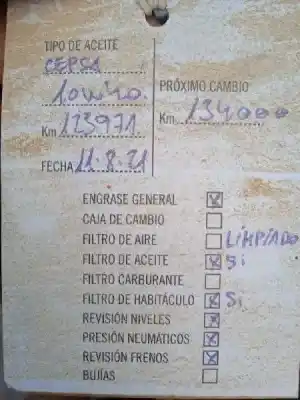 TIPO DE ACEITE
CEPSA
10W40.
Km 123971.
FECHA 11.8.21
PRÓXIMO CAMBIO
Km 134000
ENGRASE GENERAL ☒
CAJA DE CAMBIO ☐
FILTRO DE AIRE ☐ LIMPIADO
FILTRO DE ACEITE ☒ Si
FILTRO CARBURANTE ☐
FILTRO DE HABITÁCULO ☒ Si
REVISIÓN NIVELES ☒
PRESIÓN NEUMÁTICOS ☒
REVISIÓN FRENOS ☒
BUJÍAS ☐